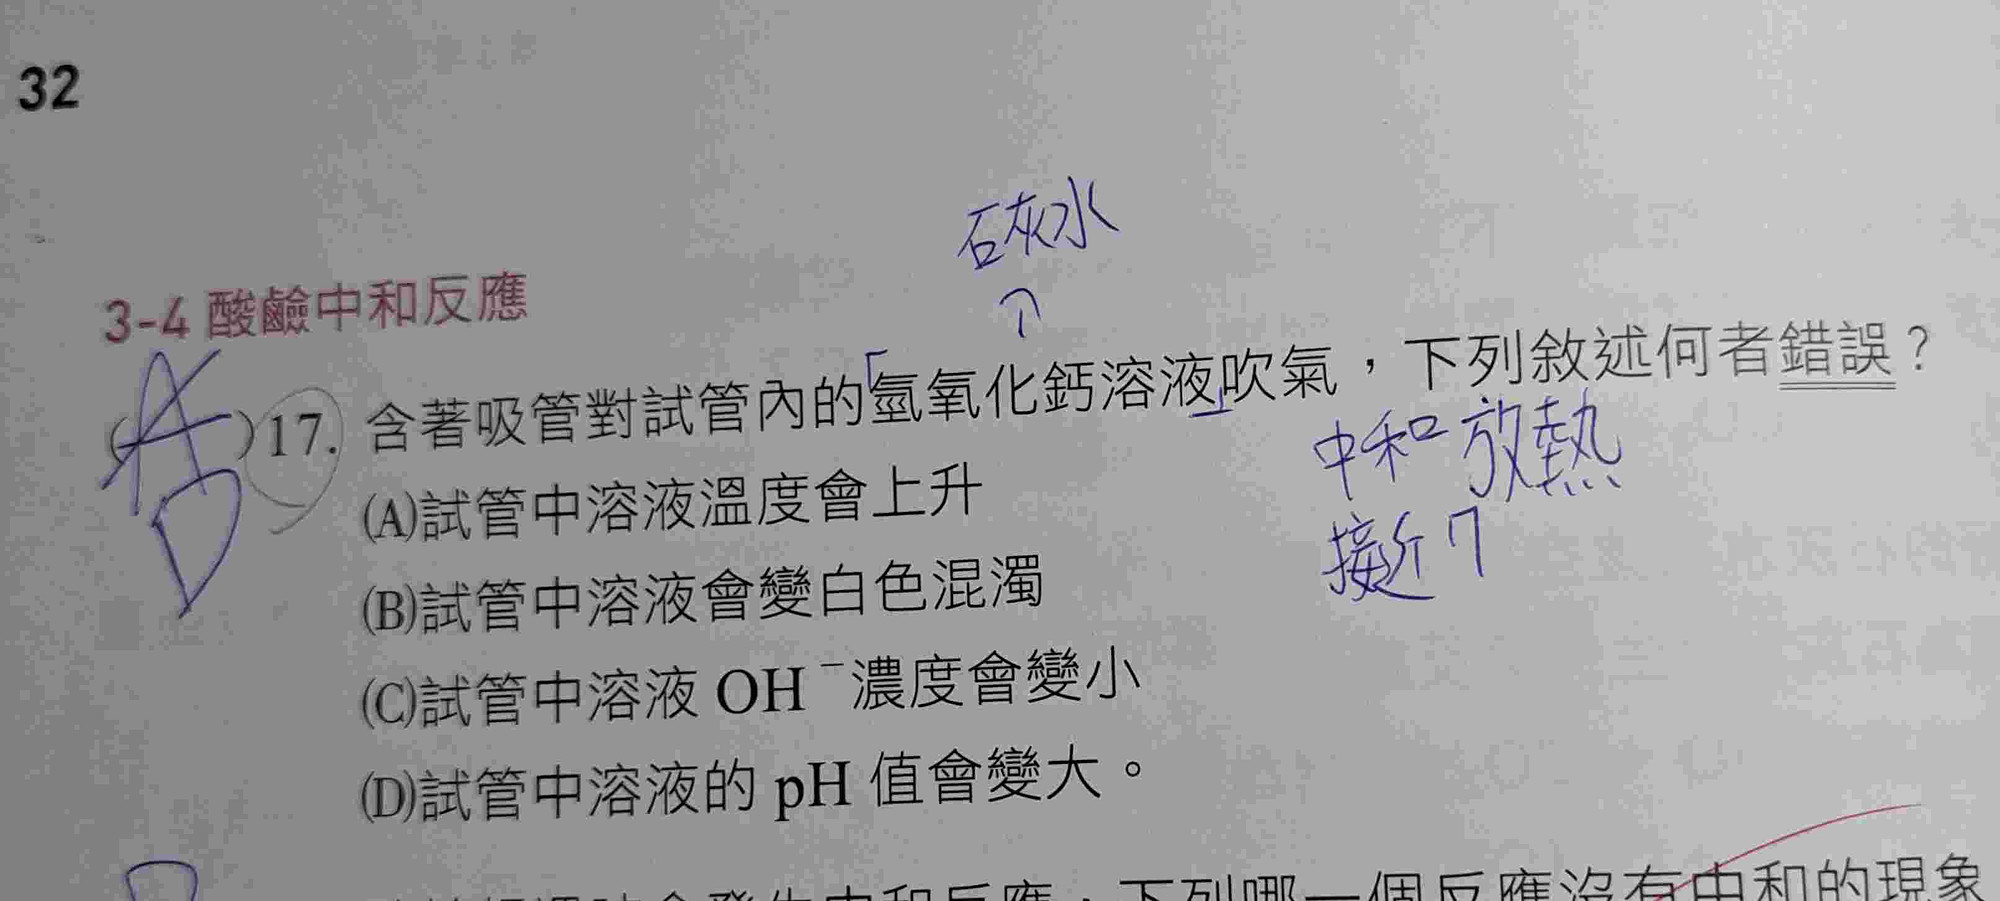 32
石灰水
↑
3-4 酸鹼中和反應
( A D )17. 含著吸管對試管內的「氫氧化鈣溶液」吹氣，下列敘述何者錯誤？
中和放熱
(A)試管中溶液溫度會上升
接近7
(B)試管中溶液會變白色混濁
(C)試管中溶液 OH⁻濃度會變小
(D)試管中溶液的 pH 值會變大。
中和反應，下列哪一個反應沒有中和的現象